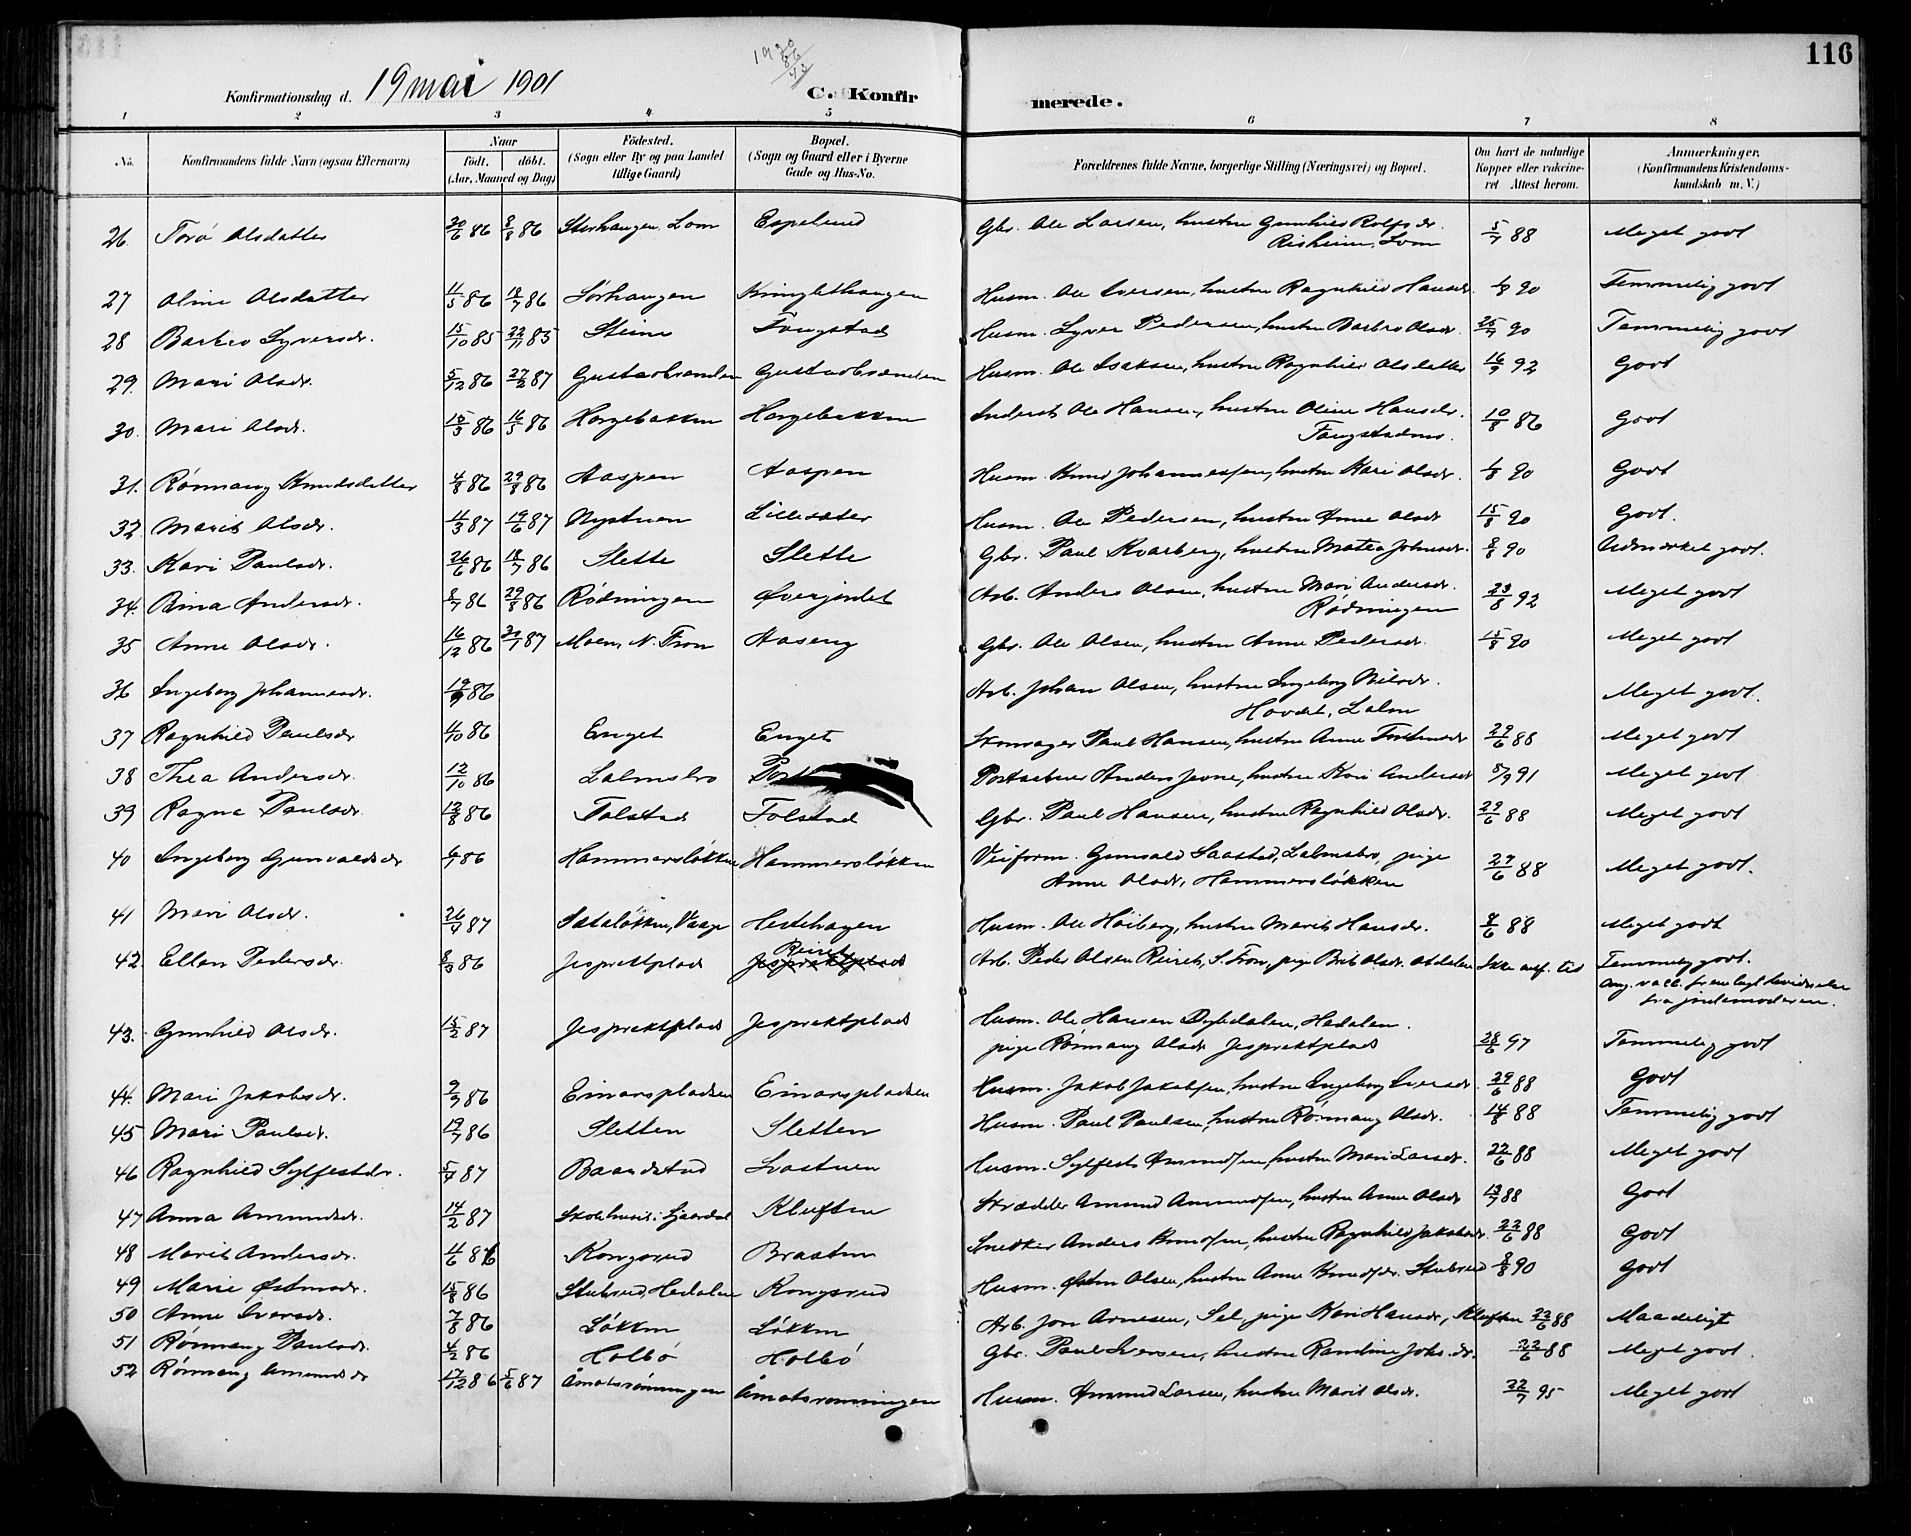 116
Konfirmationsdag d. 19 mai 1901
C. Konfir merede.
1 2 3 4 5 6 7 8
No. Konfirmandens fulde Navn (ogsaa Efternavn) Naar født. døbt. (Aar, Maaned og Dag) Fødested. (Sogn eller By og paa Landet tillige Gaard) Bopæl. (Sogn og Gaard eller i Byerne Gade og Hus-No. Forældrenes fulde Navne, borgerlige Stilling (Næringsvei) og Bopæl. Om havt de naturlige Kopper eller vakcineret Attest herom. Anmærkninger. (Konfirmandens Kristendomskundskab m. V.)
26. Torø Olsdatter 30/6 86 8/8 86 Lom Espelund Gbr. Ole Larsen, hustru Gunhild Rolfsdr. 5/7 88 Meget godt
Risheim, Lom
27 Oline Olsdatter 11/5 86 18/7 86 Sørhaugen Kringlethaugen Husm. Ole Iversen, hustru Ragnhild Hansdr. 90 Temmelig godt
28 Barbro Syversdr. 15/10 85 22/11 85 Steine Tongstad Husm. Syver Pedersen, hustru Barbro Olsdr. 90 Temmelig godt
29. Mari Olsdr. 5/12 86 27/2 87 Gustavbrænden Gustavbrænden Husm. Ole Isaksen, hustru Ragnhild Olsdatter 16/9 92 Godt
30. Mari Olsdr. 15/3 86 16/5 86 Horgebakken Horgebakken Inderst Ole Hansen, hustru Oline Hansdr. 10/8 86 Godt
31. Rønnaug Knudsdatter 4/8 86 29/8 86 Aaspen Aaspen Husm. Knud Johannessen, hustru Kari Olsdr. 90 Godt
32. Marit Olsdr. 11/3 87 19/6 87 Nystuen Lillesæter Husm. Ole Pedersen, hustru Anne Olsdr 15/8 90 Godt.
33. Kari Paulsdr. 26/6 86 18/7 86 Slette Slette Gbr. Paul Kvarberg, hustru Mathea Johnsdr. 8/8 90 Udmærket godt.
34. Rina Andersdr. 8/7 86 29/8 86 Rødningen Øverjordet Arb. Anders Olsen, hustru Mari Andersdr. 23/8 92 Meget godt
Rødningen
35 Anne Olsdr. 16/12 86 87 Moen, N. Fron Aaseng Gbr. Ole Olsen, hustru Anne Pedersdr. 15/8 90 Meget godt
36 Ingeborg Johannesdr. 19/9 86 Arb. Johan Olsen, hustru Ingeborg Nilsdr. Meget godt.
Hovdet, Lalm
37 Ragnhild Paulsdr 4/10 86 Enget Enget Paul Hansen, hustru Anne 29/6 88 Meget godt
38 Thea Andersdr. 12/10 86 Lalmsbro Post Postaabner Anders Jevne, hustru Kari Andersdr 8/9 91 Meget godt
39 Ragna Paulsdr. 12/8 86 Tolstad Tolstad Gbr. Paul Hansen, hustru Ragnhild Olsdr. 29/6 88 Meget godt
40 Ingeborg Gunvaldsdr 86 Hammersløkken Hammersløkken Veiform. Gunvald Saastad, Lalmsbro, pige 29/6 88 Meget godt.
Anne Olsdr, Hammersløkken
41 Mari Olsdr. 26/4 87 Sataløkken, Vaage Hestehagen Husm. Ole Høiberg, hustru Marit Hansdr. 8/6 88 Meget godt
42. Ellen Pedersdr. 8/3 86 Jesprektplads Reiret Jespraktplads Arb. Peder Olsen Reiret, S. Fron, pige Brit Olsdr. Ikke Temmelig godt.
fra jordemoderen.
43. Gunhild Olsdr. 15/2 87 Jesprektplads Jesprektplads Husm. Ole Hansen Dybdalen, Hedalen.
pige Rønnaug Olsdr Jesprektplads 28/6 97 Temmelig godt
44. Mari Jakobsdr. 86 Einarspladsen Einarspladsen Husm. Jakob Jakobsen, hustru Ingeborg Iversdr. 29/6 88 Godt
45 Mari Paulsdr. 19/7 86 Sletten Sletten Husm. Paul Paulsen, hustru Rønnaug Olsdr. 14/8 88 Temmelig godt
46 Ragnhild Sylfestdr. 87 Baarstad Husm. Sylfest Amundsen, hustru Mari Larsdr. 22/6 88 Meget godt
47 Anna Amundsdr. 14/2 87 Kluften Skrædder Amund Amundsen, hustru Anne Olsdr 88 Godt
48 Marit Andersdr. 4/6 86 Kongsrud Braaten Snedker Anders Knudsen, hustru Ragnhild Jakobsdr. 22/6 88 Godt
49 Marie Østensdr. 15/8 86 Stubrud, Hedalen Kongsrud Husm. Østen Olsen, hustru Anne Knudsdr. Stubrud 8/8 90 Godt
50 Anne Iversdr. 7/8 86 Løkken Løkken Arb. Jon Arnesen, Sel, pige Kari Hansdr, Kluften 22/6 88 Maadeligt
51 Rønnaug Paulsdr. 4/2 86 Holbø Holbø Gbr. Paul Iversen, hustru Randine Johs.dr. 22/6 88 Meget godt.
52 Rønnaug Amundsdr 17/12 86 5/6 87 Åmotsrønningen Åmotsrønningen Husm. Amund Larsen, hustru Marit Olsdr. 22/7 95 Meget godt